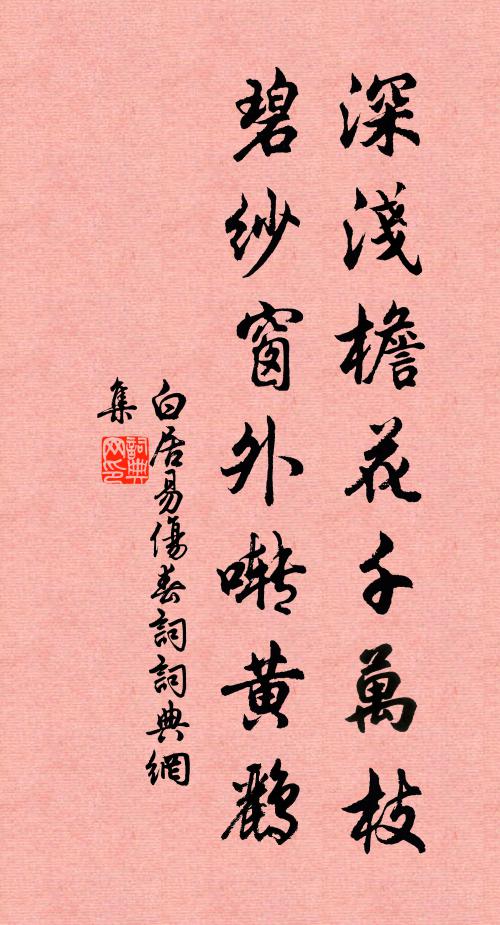 深淺檐花千萬枝
碧紗窗外囀黃鸝
白居易傷春詞詞典網
集
詞典网印